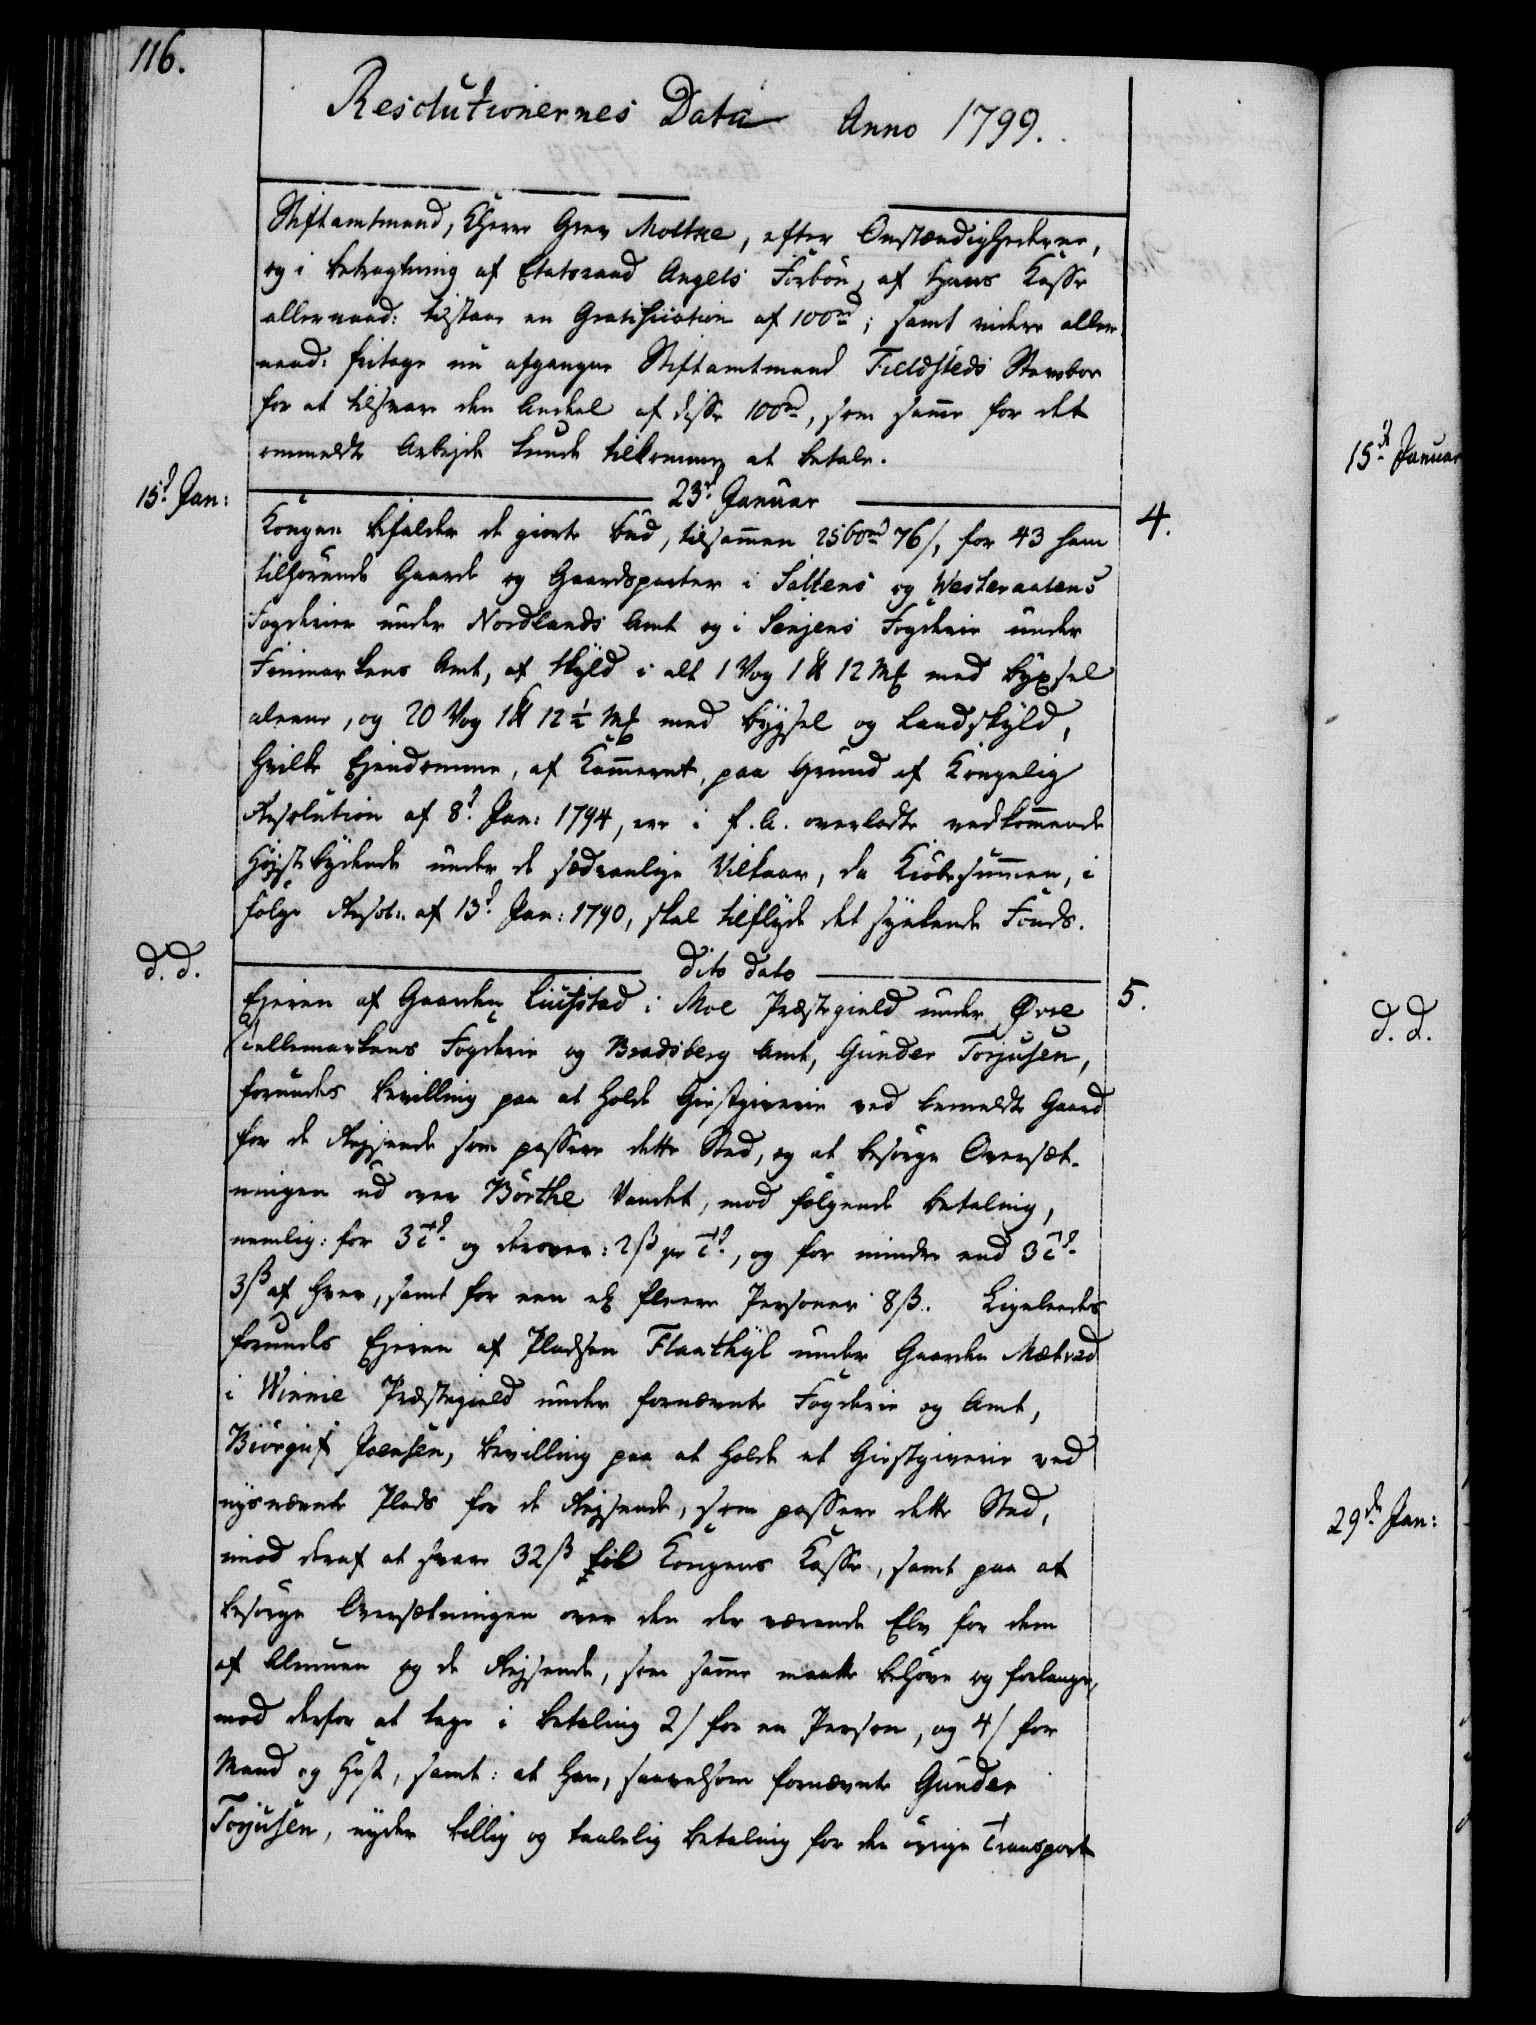 116.
Resolutionernes Data Anno 1799.
Stiftamtmand, Kherr Grev Moltke, efter Omstændighederne,
og i betragtning af Etatsraad Angels Forbön, af Hans Kasse
allernaad: tilstaae en Gratification af 100 rd; samt videre aller-
naad: fritage nu afgangne Stiftamtmand Fieldsteds Sterbboe
for at tilsvare den Andeel af disse 100 rd, som samme for det
ommeldte Arbejde kunde tilkomme at betale.
15d Jan:
23d Januar
4.
Kongen befalder de giorte bud, tilsammen 2560 rd 76 s, for 43 ham
tilhørende Gaarde og Gaardsparter i Saltens og Westeraalens
Fogderier under Nordlands Amt og i Senjens Fogderie under
Finmarkens Amt, af skyld i alt 1 Vog 1 ℔ 12 Mk med bygsel
alene, og 20 Vog 1 ℔ 12 ½ Mk med bygsel og Landskyld,
hvilke Ejendomme, af Kammeret, paa Grund af Kongelig
Resolution af 8d Jan: 1794, ere i f. A. overladte vedkommende
Højstbydende under de sædvanlige Vilkaar, da Kiøbesummen, i
følge Resol: af 13d Jan: 1790, skal tilflyde det synkende Fonds.
d. d.
dito dato
5.
Ejeren af Gaarden Liusstad i Moe Præstegield under Øvre
Tellemarkens Fogderie og Bradsberg Amt, Gunder Torjusen,
forundes bevilling paa at holde Giestgiverie ved bemeldte Gaard
for de Rejsende som passere dette Sted, og at besørge Oversæt-
ningen ud over Börthe Vandet, mod følgende betaling,
nemlig: for 3 Td og derover: 2 ß pr Td, og for mindre end 3 Td
3 ß af hver, samt for een el fleere Personer 8 ß. Ligeleedes
forundes Ejeren af Pladsen Flaathyl under Gaarden Mætvad
i Winnie Præstegield under fornævnte Fogderie og Amt,
Biörguf Joensen, bevilling paa at holde et Giestgiverie ved
nysnævnte Plads for de Rejsende, som passere dette Sted,
imod deraf at svare 32 ß til Kongens Kasse, samt paa at
besørge Oversætningen over den der værende Elv for dem
af Almuen og de Rejsende, som samme maatte behøve og forlange,
mod derfor at tage i betaling 2 s for en Person, og 4 s for
Mand og Hest, samt: at han, saavelsom fornævnte Gunder
Torjusen, nyder billig og taalelig betaling for den øvrige Transport
15d Januar
d. d.
29de Jan: